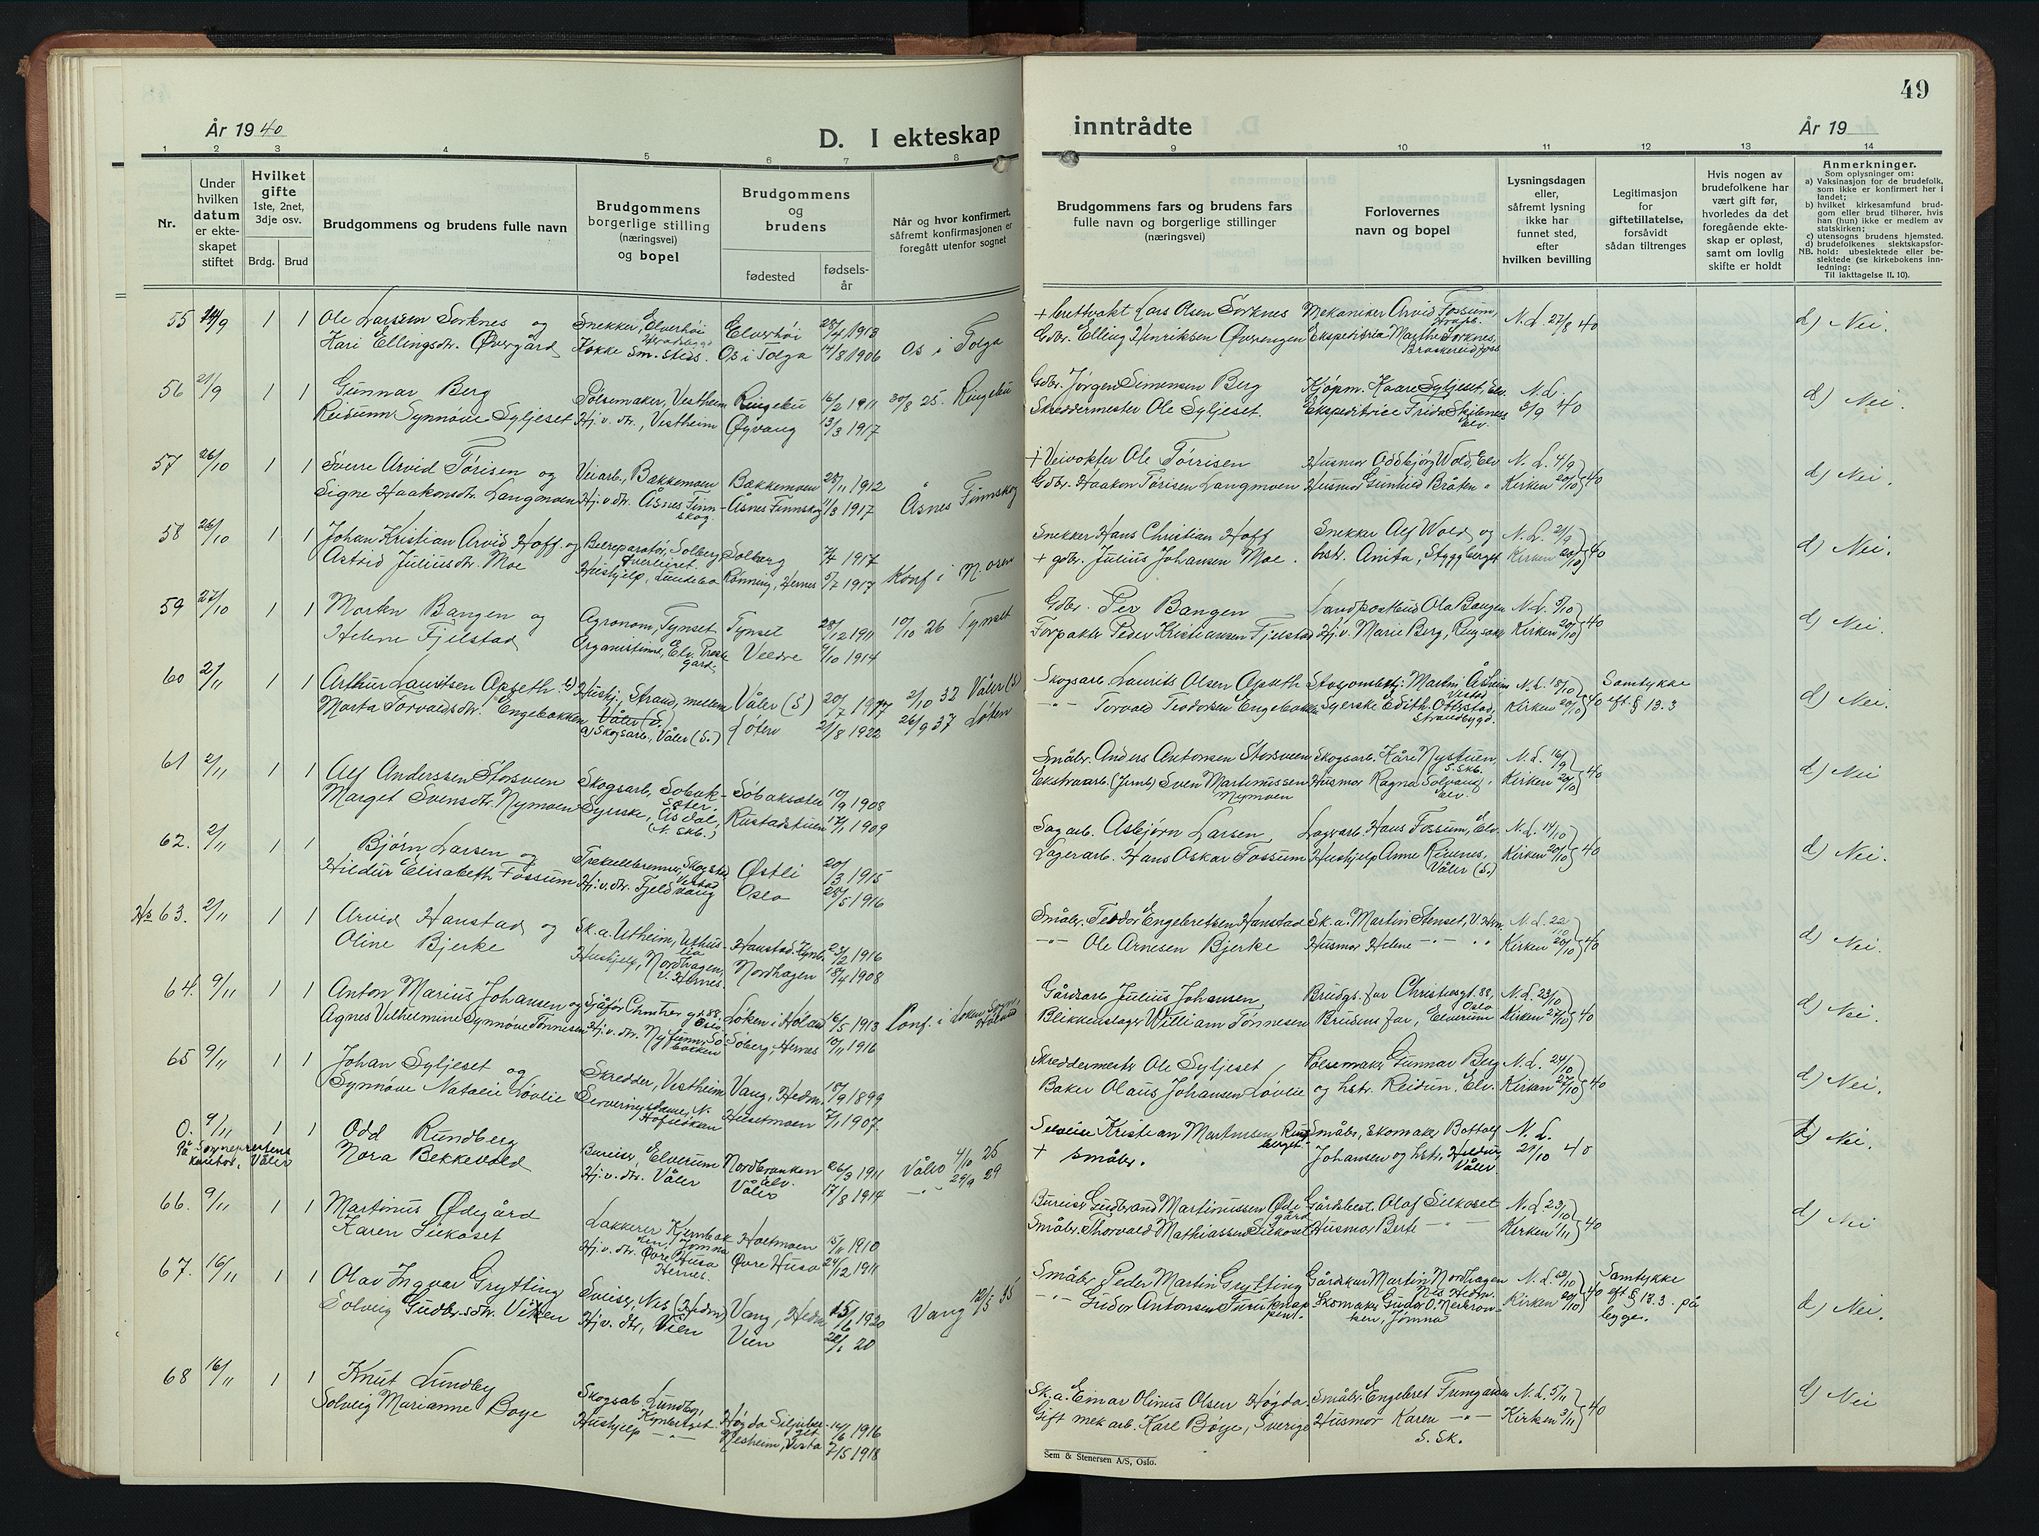 49
År 1940
D. I ekteskap
inntrådte
År 19
1 2 3 4 5 6 7 8 9 10 11 12 13 14
Nr.
Under hvilken datum er ekteskapet stiftet
Hvilket gifte
1ste, 2net, 3dje osv.
Brdg. Brud
Brudgommens og brudens fulle navn
Brudgommens borgerlige stilling (næringsvei) og bopel
Brudgommens og brudens
fødested
fødselsår
Når og hvor konfirmert, såfremt konfirmasjonen er foregått utenfor sognet
Brudgommens fars og brudens fars fulle navn og borgerlige stillinger (næringsvei)
Forlovernes navn og bopel
Lysningsdagen eller, såfremt lysning ikke har funnet sted, efter hvilken bevilling
Legitimasjon for giftetillatelse, forsåvidt sådan tiltrenges
Hvis nogen av brudefolkene har vært gift før, hvorledes da det foregående ekteskap er opløst, samt om lovlig skifte er holdt
Anmerkninger.
Som oplysninger om:
a) Vaksinasjon for de brudefolk, som ikke er konfirmert her i landet;
b) hvilket kirkesamfund brudgom eller brud tilhører, hvis han (hun) ikke er medlem av statskirken;
c) utensogns brudens hjemsted.
d) brudefolkenes slektskapsforhold: ubeslektede eller beslektede (se kirkebokens innledning:
NB.
Til iakttagelse II. 10).
55 14/9 1 1 Ole Larssen Sorknes og Snekker, Elverhöi Elverhöi 28/4 1913 + Lars Olsen Sorknes Mekaniker Arvid Fossum, N. L. 27/8 40 d) Nei.
Kari Ellingsdtr. Övergård Kokke Sm. steds. Os i Tolga 14/8 1906 Os i Tolga Gdbr. Elling Henriksen Ekspeditrice Marthe Sorknes,
56 21/9 1 1 Gunnar Berg Pölsemaker, Vestheim Ringebu 16/2 1911 30/8 25. Ringebu Gdbr. Jörgen Simensen Berg Kjöpm. Kaare Syljeset, Elv. N. L. d) Nei.
Synnöve Syljeset Hj. v. dtr., Vestheim Öyvang 13/3 1917 Skreddermester Ole Syljeset. Ekspeditrice Frida 3/9 40
57 26/10 1 1 Sverre Arvid Törisen og Veiarb., Bakkemoen Bakkemoen 28/11 1912 + Veivokter Ole Törrisen Husmor Oddbjörg Wold, Elv. N. L. 4/9 d) Nei.
Signe Haakonsdtr. Langmoen Hj. v. dtr. Åsnes Finnskog. Åsnes Finnskog 21/3 1917 Åsnes Finnskog Gdbr. Haakon Törisen Langmoen Husmor Gunhild Bråten " Kirken 20/10 40
58 26/10 1 1 Johan Kristian Arvid Hoff og Solberg Solberg 1917 Snekker Hans Christian Hoff Snekker Alf Wold og N. L. 21/9 d) Nei.
Astrid Juliusdtr. Moe Hushjelp, Lundebo Rönning, Hernes 5/7 1917 Konf i N. Osen + gdbr. Julius Johansen Moe. hstr. Anita, Styggberget Kirken 20/10 40
59 27/10 1 1 Morten Bangen og Agronom, Tynset Tynset 28/12 1911 10/10 26 Tynset Gdbr. Per Bangen Landpostbud Ola Bangen N. L. 5/10 d) Nei.
Helene Fjelstad Organistinne, Elv. Prestegård Veldre 9/10 1914 Forpakter Peder Kristiansen Fjelstad Hj. v. Marie Berg, Ringsaker Kirken 20/10 40
60 2/11 Arthur Lauritsen Opseth Strand, mellem Våler (S) 20/7 1917 2/10 32 Våler (S) Skogsarb. Laurits Olsen Opseth N. L. 18/10 Samtykke d) Nei.
Marta Torvaldsdtr. Engebakken a) Skogsarb., Våler (S.) Löten 21/8 1922 26/9 37 Löten -"- Torvald Teodorsen Engebakken Syerske Edith Ottestad, Strandbygd. Kirken 20/10 40 eft. § 13. 3
61 2/11 1 1 Alf Anderssen Storsveen Skogsarb., Sobaksæter. Söbaksæter 10/9 1908 Småbr. Anders Antonsen Storsveen Skogsarb. Kåre Nystuen, N. L. 16/9 d) Nei
Marget Svensdtr. Nymoen Syerske, Åsdal, (N. Skb.) Rustadstuen 17/1 1909 Ekstraarb. (Jernb) Sven Martinussen Nymoen Husmor Ragna Solvang, Elv. Kirken 20/10 40
62. 2/11 1 1 Björn Larsen og Östli 20/3 1915 Sagarb. Asbjörn Larsen Lagerarb. Hans Fossum, Elv. N. L. 14/10 d) Nei.
Hildur Elisabeth Fossum Hj. v. dtr. Fjeldvang Oslo 28/5 1916 Lagerarb. Hans Oskar Fossum Hushjelp Anne Våler (S.) Kirken 20/10 40
Hs 63. 2/11 1 1 Arvid Hanstad og Sk. a. Utheim, Hanstad. 23/2 1916 Småbr. Teodor Engebretsen Hanstad Sk. a. Martin Stenset, V. Hern. N. L. 22/10 d) Nei.
Oline Bjerke Hushjelp, Nordhagen, V. Hernes. Nordhagen 18/4 1908 -"- Ole Arnesen Bjerke Husmor Helene -"- Kirken 20/10 40
64. 9/11 1 1 Anton Marius Johansen og gt. 88. Oslo Löken i Höland 16/5 1913 Konf. i Löken Sogn, Höland Gårdsarb. Julius Johansen, Brudgs. far Christiesgt. 88, Oslo N. L. 23/10 d) Nei.
Agnes Vilhelmine Synnöve Tönnesen Hj. v. dtr. Soberg, Hernes 10/11 1916 Blikkenslager William Tönnesen Brudens far, Elverum Kirken 27/10 40
65 9/11 1 1 Johan Syljeset og Skredder, Vestheim Vang, Hedm. 18/9 1899 Skreddermester Ole Syljeset Pölsemaker Gunnar Berg N. L. 24/10 d) Nei.
Synnöve Natalie Lövlie Serveringsdame, N. Husetmoen 7/1 1907. Baker Olaus Johansen Lövlie og hstr. Reidun, Elv. Kirken 27/10 40
0. 9/11 1 1 Odd Rundberg Bureiser, Elverum Nordbranken Elv. 26/3 1911 Våler 4/10 25 Kristian Martinsen Småbr., Skomaker Bottolf N. L. d) Nei.
På Sogneprestens kontor. Våler Nora Bekkevold Hj. v. dtr. Våler Våler 17/8 1914 -"- 29/9 29 + småbr. Johansen og hstr. Hildur, Våler 21/10 40
66. 9/11 1 1 Martinus Ödegård Lakkerer Holtmoen 15/11 1910 Bureiser Gudbrand Martinussen Ödegård Gårdsbest. Olaf Silkoset N. L. 23/10 d) Nei
Karen Silkoset Hj. v. dtr. Övre Husa Hernes. Övre Husa 24/12 1911 Småbr. Thorvald Mathiassen Silkoset Husmor Berte -"- Kirken 1/11 40
67. 16/11 1 1 Olav Ingvar Grytting Sveiser, Nes (Hedm) Vang, Hedm. 1920 Vang 12/5 35 Småbr. Peder Martin Grytting Martin Nordhagen Nes Hedm. N. L. Samtykke d) Nei.
Solveig Gudbr.sdtr. Vien Hj. v. dtr., Vien Vien 20 -"- Gudbr. Antonsen Skomaker Gudbr. O. Jömna Kirken 20/10 40 eft § 13. 3. på begge.
68 16/11 1 1 Knut Lundby Skogsarb. Lundby, Kynberget. Högda 14/6 1916 Sk. a. Einar Olinus Olsen Högda Småbr. Engebret N. L. 5/11 d) Nei
Solveig Marianne Böye Hushjelp -"- Nesheim, 7/5 1918 Gift mek arb. Karl Böye, Sverige Husmor Karen -"- S. Sk. Kirken 3/11 40
Sem & Stenersen A/S, Oslo.